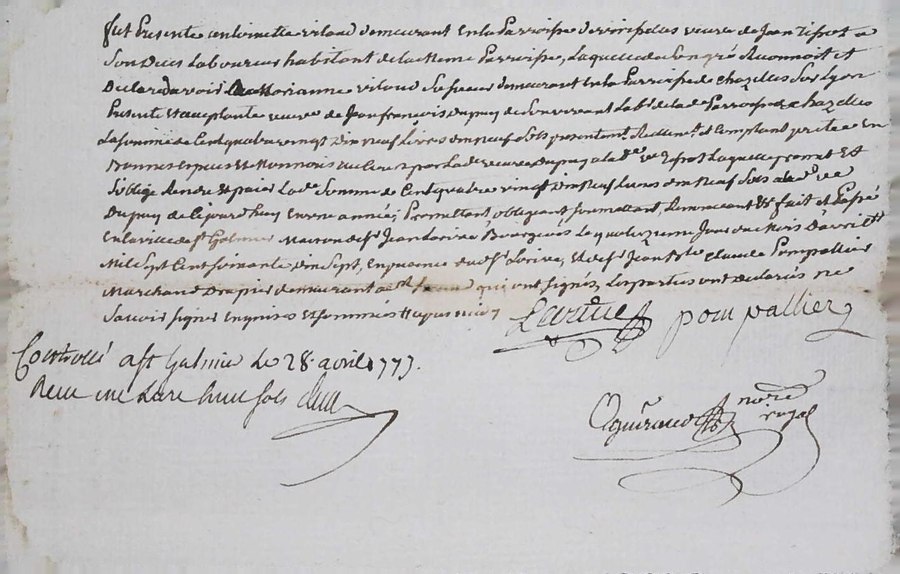 fut Presente antoinette vilard demeurant en la Parroisse de veuve de Jean tissot a
Son Deces Laboureur habitant de la meme Parroisse, Laquelle de Son gré Reconnoit et
Declare davoir Marianne vilard Sa Sœur demeurant en la Parroisse de chazelles Sur Lyon
Presente et acceptante veuve de Jean francois Dupuy de Son vivant Labr de lad. Parroisse de chazelles
La Somme de Cent quatre vingt Dix neuf Livres dix neuf Sols presentemt Reellemt et Comptant pretée en
Bonnes especes et Monnoie du Cours par Lad. veuve Dupuy a lad. ve tissot Laquelle promet et
Soblige Rendre et paier Lad. Somme de Cent quatre vingt dix neuf Livres dix neuf Sols a lad. ve
Dupuy de Cejourdhuy en une année; Promettant obligeant Soumettant Renonceant &c fait et Passé
en la ville de St Galmier Maison de Sr Jean Bourgeois Le jour du Mois Davril
Mil Sept Cent Soixante dix Sept, en presence dud. Sr et de Sr Jean claude Pompallier
Marchand Drapier demeurant aud. qui ont Signés, Les parties ont Declarés ne
Savoir Signer Enquises et Sommées
pompallier
Controllé a St Galmier Le 28. avril 1777.
Reçu une Livre huit Sols
nore
royal